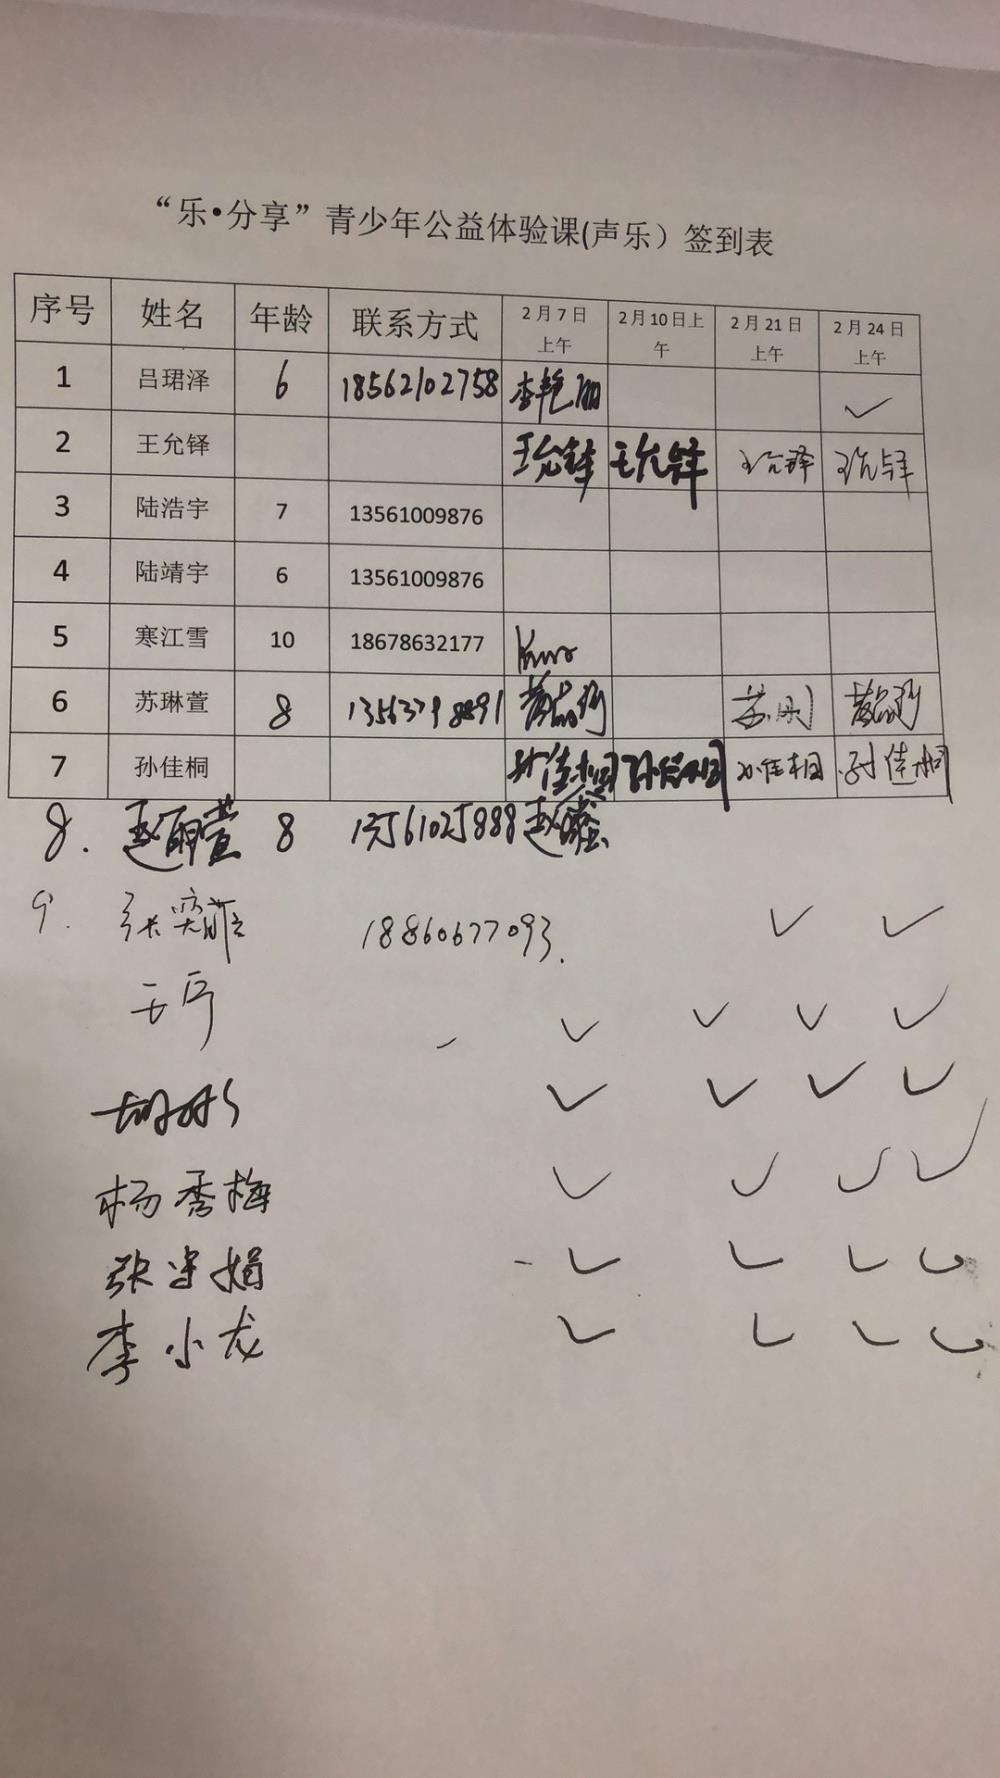 “乐•分享”青少年公益体验课(声乐）签到表
序号 姓名 年龄 联系方式 2月7日上午 2月10日上午 2月21日上午 2月24日上午
1 吕珺泽 6 18562102758 李艳丽 ✓
2 王允铎 王允铎 王允铎 王允铎 王允铎
3 陆浩宇 7 13561009876
4 陆靖宇 6 13561009876
5 寒江雪 10 18678632177
6 苏琳萱 8 13563798891 苏丹
7 孙佳桐 孙佳桐 孙佳桐 孙佳桐 孙佳桐
8. 8 13561025888
9. 张奕菲 18860677093. ✓ ✓
✓ ✓ ✓ ✓
✓ ✓ ✓ ✓
杨秀梅 ✓ ✓ ✓ ✓
张守娟 ✓ ✓ ✓ ✓
李小龙 ✓ ✓ ✓ ✓